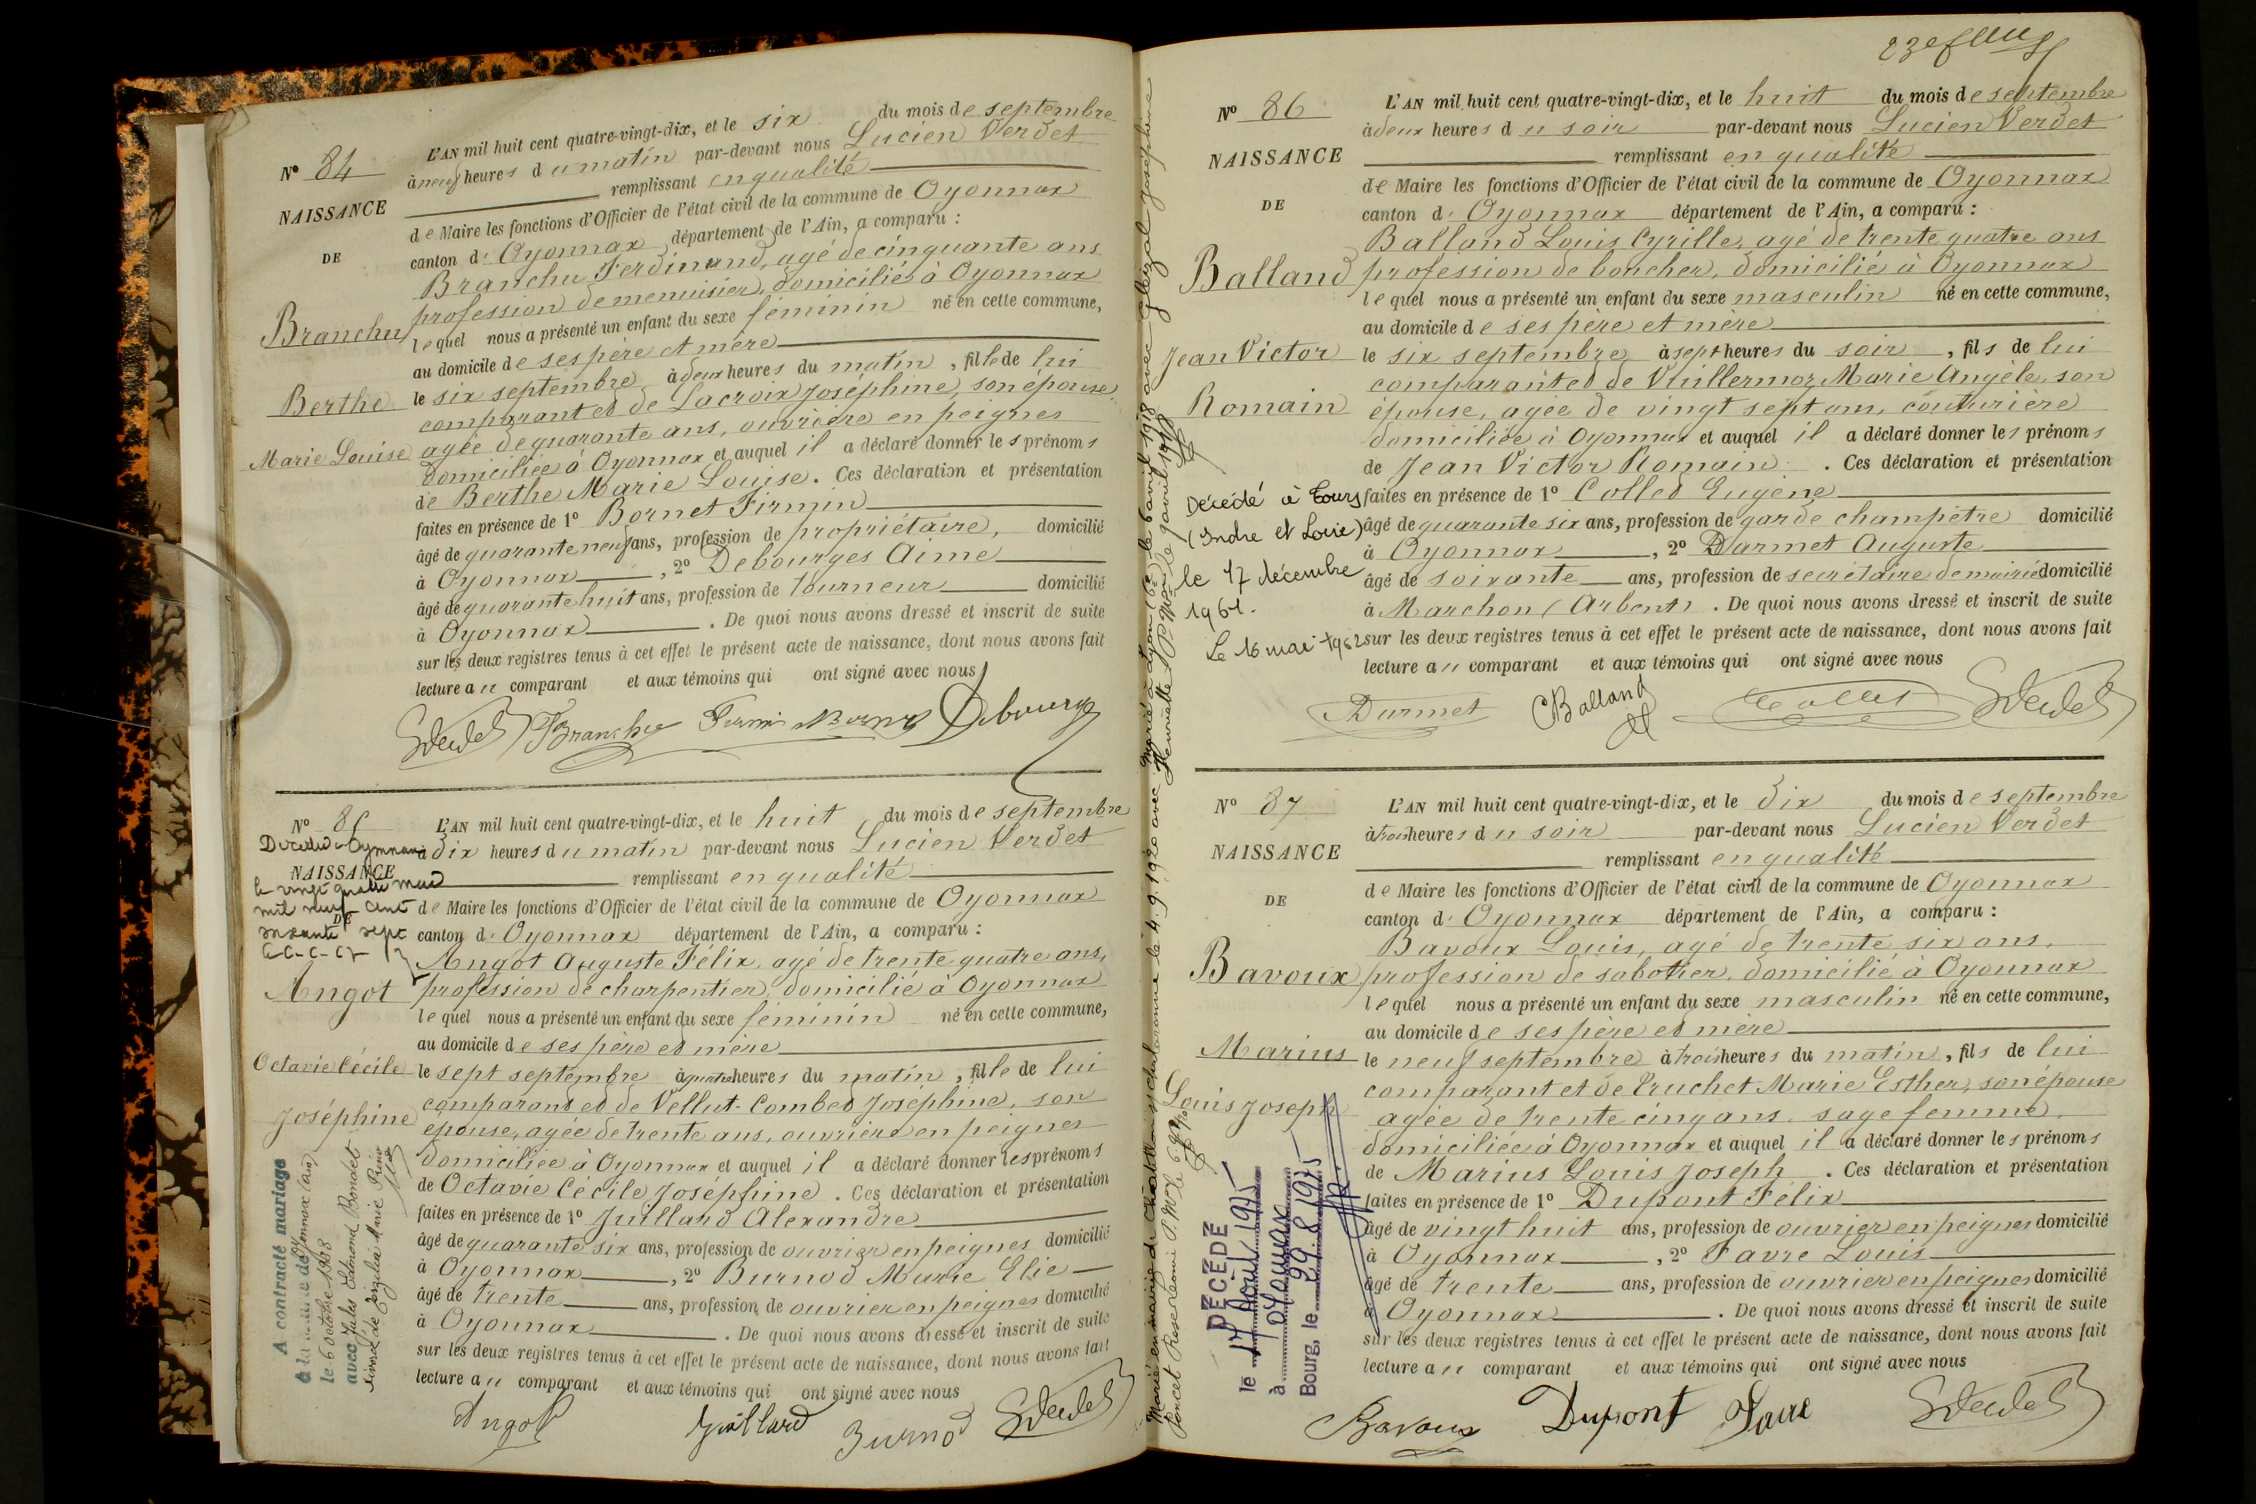 Nº 84
NAISSANCE
DE
Branchu
Berthe
Marie Louise
L'AN mil huit cent quatre-vingt-dix, et le six du mois de septembre
à neuf heures du matin par-devant nous Lucien Verdet
remplissant en qualité
de Maire les fonctions d'Officier de l'état civil de la commune de Oyonnax
canton d' Oyonnax département de l'Ain, a comparu :
Branchu Ferdinand, agé de cinquante ans
profession de menuisier, domicilié à Oyonnax
lequel nous a présenté un enfant du sexe féminin né en cette commune,
au domicile de ses père et mère
le six septembre à deux heures du matin, fille de lui
comparant et de Lacroix Joséphine, son épouse,
agée de quarante ans, ouvrière en peignes
domiciliée à Oyonnax et auquel il a déclaré donner les prénoms
de Berthe Marie Louise. Ces déclaration et présentation
faites en présence de 1º Bornet Firmin
âgé de quarante neuf ans, profession de propriétaire, domicilié
à Oyonnax, 2º Debourges Aimé
âgé de quarante huit ans, profession de tourneur domicilié
à Oyonnax. De quoi nous avons dressé et inscrit de suite
sur les deux registres tenus à cet effet le présent acte de naissance, dont nous avons fait
lecture au comparant et aux témoins qui ont signé avec nous
Verdet Branchu Firmin Bornet Debourges
Nº 85
NAISSANCE
DE
Décédé à Oyonnax
le vingt quatre mai
mil neuf cent
soixante sept
Angot
Octavie Cécile
Joséphine
A contracté mariage
à la mairie de Oyonnax (Ain)
le 6 octobre 1908
avec Jules Edmond Bondet
L'AN mil huit cent quatre-vingt-dix, et le huit du mois de septembre
à dix heures du matin par-devant nous Lucien Verdet
remplissant en qualité
de Maire les fonctions d'Officier de l'état civil de la commune de Oyonnax
canton d' Oyonnax département de l'Ain, a comparu :
Angot Auguste Félix, agé de trente quatre ans,
profession de charpentier, domicilié à Oyonnax
lequel nous a présenté un enfant du sexe féminin né en cette commune,
au domicile de ses père et mère
le sept septembre à quatre heures du matin, fille de lui
comparant et de Vellut-Combet Joséphine, son
épouse, agée de trente ans, ouvrière en peignes
domiciliée à Oyonnax et auquel il a déclaré donner les prénoms
de Octavie Cécile Joséphine. Ces déclaration et présentation
faites en présence de 1º Juilland Alexandre
âgé de quarante six ans, profession de ouvrier en peignes domicilié
à Oyonnax, 2º Burnod Marie Elie
âgé de trente ans, profession de ouvrier en peignes domicilié
à Oyonnax. De quoi nous avons dressé et inscrit de suite
sur les deux registres tenus à cet effet le présent acte de naissance, dont nous avons fait
lecture au comparant et aux témoins qui ont signé avec nous
Angot Juilland Burnod Verdet
Nº 86
NAISSANCE
DE
Balland
Jean Victor
Romain
Décédé à Tours
(Indre et Loire)
le 17 décembre
1961.
Le 16 mai 1962
L'AN mil huit cent quatre-vingt-dix, et le huit du mois de septembre
à deux heures du soir par-devant nous Lucien Verdet
remplissant en qualité
de Maire les fonctions d'Officier de l'état civil de la commune de Oyonnax
canton d' Oyonnax département de l'Ain, a comparu :
Balland Louis Cyrille, agé de trente quatre ans
profession de boucher, domicilié à Oyonnax
lequel nous a présenté un enfant du sexe masculin né en cette commune,
au domicile de ses père et mère
le six septembre à sept heures du soir, fils de lui
comparant et de Vuillermoz Marie Angèle, son
épouse, agée de vingt sept ans, couturière
domiciliée à Oyonnax et auquel il a déclaré donner les prénoms
de Jean Victor Romain. Ces déclaration et présentation
faites en présence de 1º Collet Eugène
âgé de quarante six ans, profession de garde champêtre domicilié
à Oyonnax, 2º Darmet Auguste
âgé de soixante ans, profession de secrétaire de mairie domicilié
à Marchon (Arbent). De quoi nous avons dressé et inscrit de suite
sur les deux registres tenus à cet effet le présent acte de naissance, dont nous avons fait
lecture au comparant et aux témoins qui ont signé avec nous
Darmet Balland Collet Verdet
Nº 87
NAISSANCE
DE
Bavoux
Marius
Louis Joseph
DÉCÉDÉ
le 17 Août 1975
à Oyonnax
Bourg, le 29.8.1975
L'AN mil huit cent quatre-vingt-dix, et le dix du mois de septembre
à trois heures du soir par-devant nous Lucien Verdet
remplissant en qualité
de Maire les fonctions d'Officier de l'état civil de la commune de Oyonnax
canton d' Oyonnax département de l'Ain, a comparu :
Bavoux Louis, agé de trente six ans,
profession de sabotier, domicilié à Oyonnax
lequel nous a présenté un enfant du sexe masculin né en cette commune,
au domicile de ses père et mère
le neuf septembre à trois heures du matin, fils de lui
comparant et de Truchet Marie Esther, son épouse
agée de trente cinq ans, sage femme,
domiciliée à Oyonnax et auquel il a déclaré donner les prénoms
de Marius Louis Joseph. Ces déclaration et présentation
faites en présence de 1º Dupont Félix
âgé de vingt huit ans, profession de ouvrier en peignes domicilié
à Oyonnax, 2º Favre Louis
âgé de trente ans, profession de ouvrier en peignes domicilié
à Oyonnax. De quoi nous avons dressé et inscrit de suite
sur les deux registres tenus à cet effet le présent acte de naissance, dont nous avons fait
lecture au comparant et aux témoins qui ont signé avec nous
Bavoux Dupont Favre Verdet